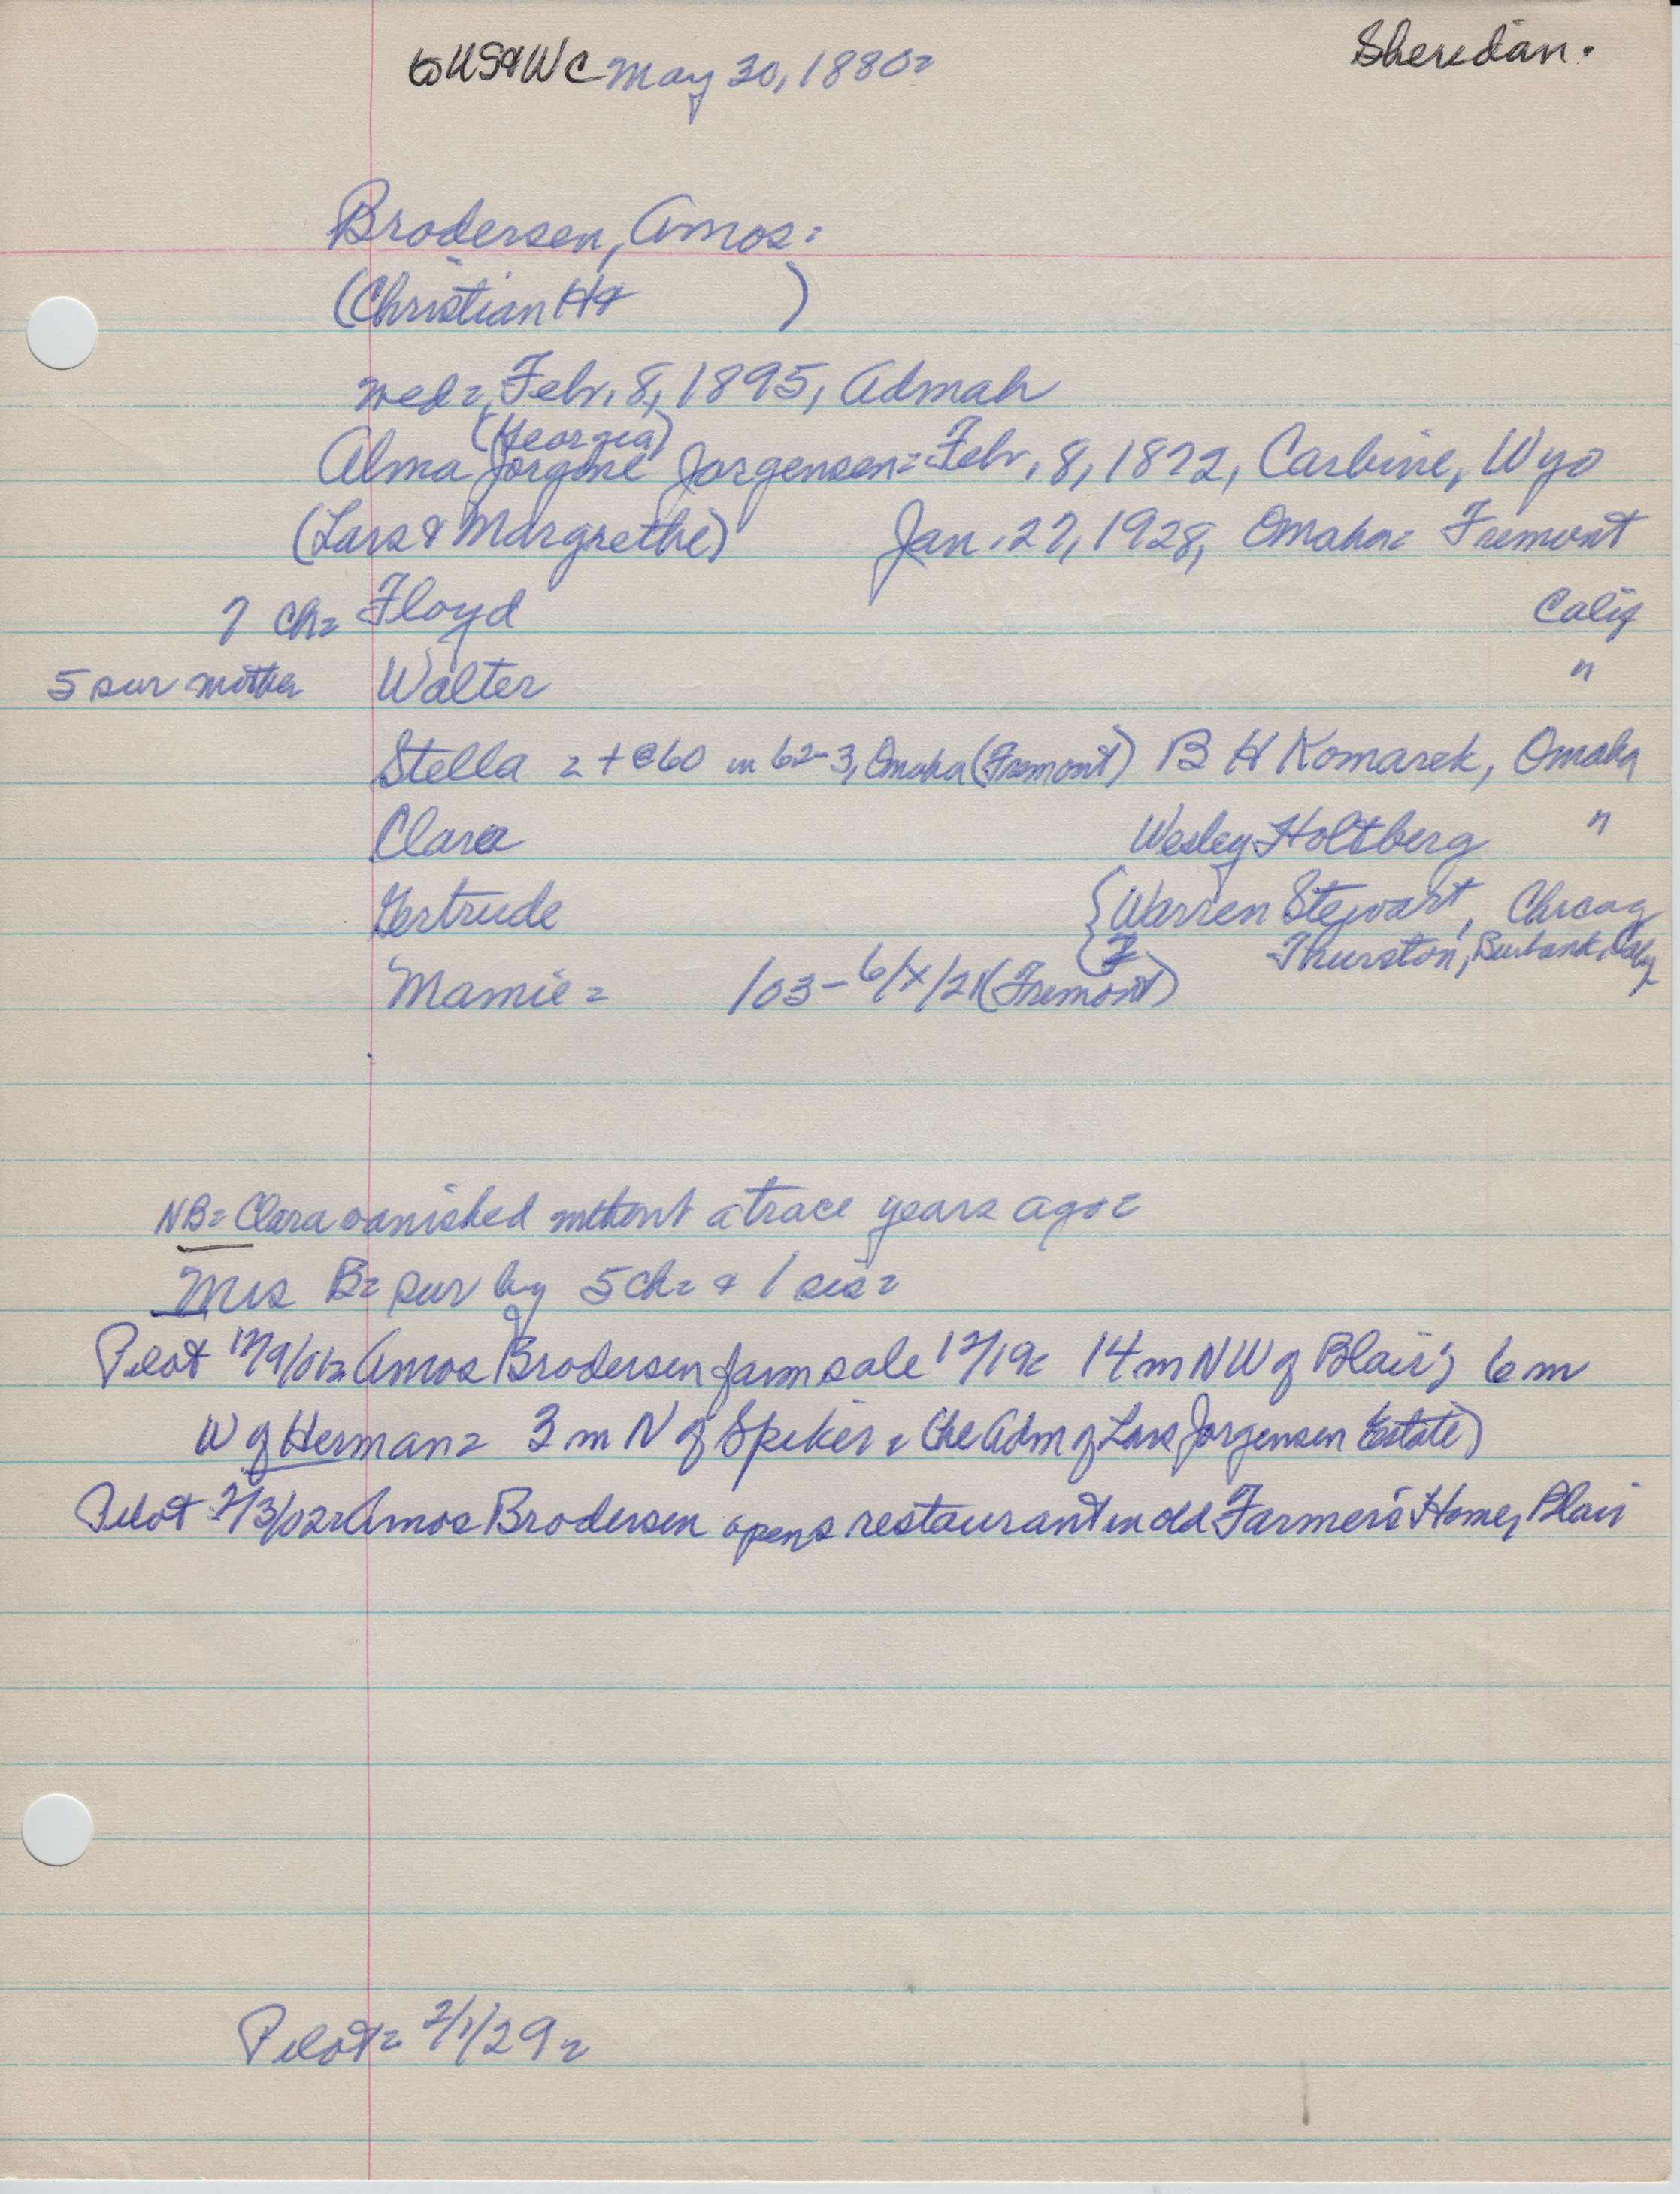 to US & WC May 30, 1880= Sheridan.
Brodersen, Amos:
(Christian H & )
wed=, Febr. 8, 1895, Admah
(Georgia)
Alma Jorgine Jorgensen= Febr. 8, 1872, Carbine, Wyo
(Lars & Margrethe) Jan. 27, 1928, Omaha= Fremont
7 ch= Floyd Calif
5 sur mother Walter "
Stella = + @60 in 62-3, Omaha (Fremont) B H Komarek, Omaha
Clara Wesley Holtberg "
Gertrude { Warren Stewart, Chicag
Thurston, Burbank, Calif
Mamie = 103- 6/x/21 (Fremont)
NB= Clara vanished without a trace years ago=
Mrs B= sur by 5 ch= & 1 sis=
Pilot 12/9/01= Amos Brodersen farm sale 12/19= 14 m NW of Blair, 6 m
W of Herman= 3 m N of Spiker, (he Adm of Lars Jorgensen Estate)
Pilot 2/3/02= Amos Brodersen opens restaurant in old Farmer's Home, Blair
Pilot= 2/1/29=